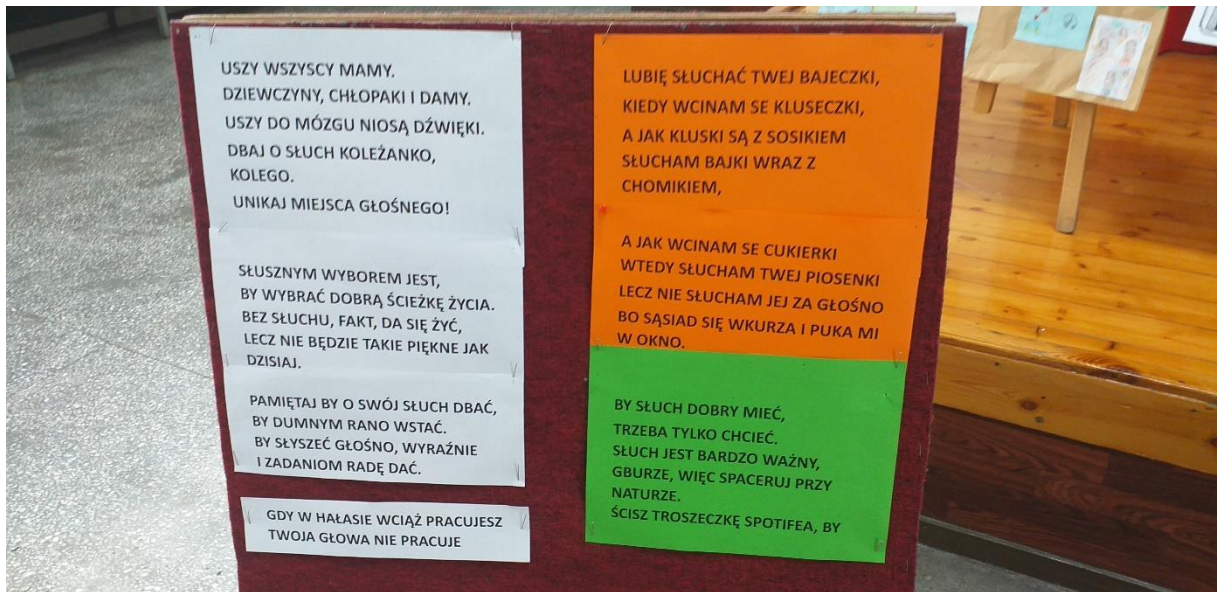 USZY WSZYSCY MAMY.
DZIEWCZYNY, CHŁOPAKI I DAMY.
USZY DO MÓZGU NIOSĄ DŹWIĘKI.
DBAJ O SŁUCH KOLEŻANKO,
KOLEGO.
UNIKAJ MIEJSCA GŁOŚNEGO!
SŁUSZNYM WYBOREM JEST,
BY WYBRAĆ DOBRĄ ŚCIEŻKĘ ŻYCIA.
BEZ SŁUCHU, FAKT, DA SIĘ ŻYĆ,
LECZ NIE BĘDZIE TAKIE PIĘKNE JAK
DZISIAJ.
PAMIĘTAJ BY O SWÓJ SŁUCH DBAĆ,
BY DUMNYM RANO WSTAĆ.
BY SŁYSZEĆ GŁOŚNO, WYRAŹNIE
I ZADANIOM RADĘ DAĆ.
GDY W HAŁASIE WCIĄŻ PRACUJESZ
TWOJA GŁOWA NIE PRACUJE
LUBIĘ SŁUCHAĆ TWEJ BAJECZKI,
KIEDY WCINAM SE KLUSECZKI,
A JAK KLUSKI SĄ Z SOSIKIEM
SŁUCHAM BAJKI WRAZ Z
CHOMIKIEM,
A JAK WCINAM SE CUKIERKI
WTEDY SŁUCHAM TWEJ PIOSENKI
LECZ NIE SŁUCHAM JEJ ZA GŁOŚNO
BO SĄSIAD SIĘ WKURZA I PUKA MI
W OKNO.
BY SŁUCH DOBRY MIEĆ,
TRZEBA TYLKO CHCIEĆ.
SŁUCH JEST BARDZO WAŻNY,
GBURZE, WIĘC SPACERUJ PRZY
NATURZE.
ŚCISZ TROSZECZKĘ SPOTIFEA, BY